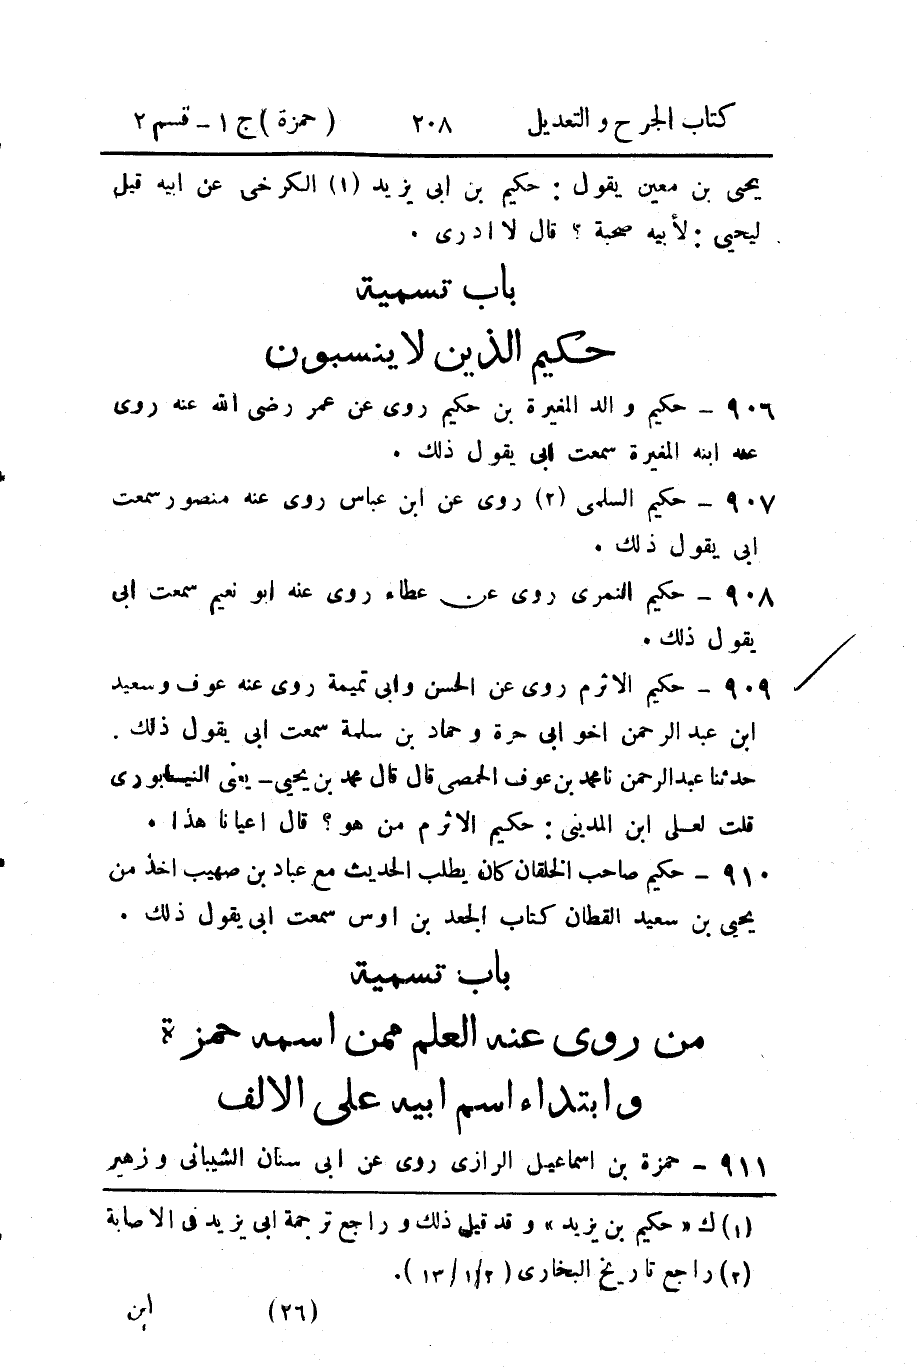 كتاب الجرح والتعديل ٢٠٨ (حمزة) ج ١ - قسم ٢
يحيى بن معين يقول : حكيم بن ابى يزيد (١) الكرخى عن ابيه قيل
ليحيى : لأبيه صحبة ؟ قال لا ادرى .
باب تسمية
حكيم الذين لا ينسبون
٩٠٦ - حكيم والد المغيرة بن حكيم روى عن عمر رضى الله عنه روى
عنه ابنه المغيرة سمعت ابى يقول ذلك .
٩٠٧ - حكيم السلمى (٢) روى عن ابن عباس روى عنه منصور سمعت
ابى يقول ذلك .
٩٠٨ - حكيم النمرى روى عن عطاء روى عنه ابو نعيم سمعت ابى
يقول ذلك .
٩٠٩ - حكيم الاثرم روى عن الحسن وابى تميمة روى عنه عوف وسعيد
ابن عبد الرحمن اخو ابى حرة وحماد بن سلمة سمعت ابى يقول ذلك .
حدثنا عبدالرحمن نا محمد بن عوف الحمصى قال قال محمد بن يحيى - يعنى النيسابورى
قلت لعلى ابن المدينى : حكيم الاثرم من هو ؟ قال اعيانا هذا .
٩١٠ - حكيم صاحب الخلقان كان يطلب الحديث مع عباد بن صهيب اخذ من
يحيى بن سعيد القطان كتاب الجعد بن اوس سمعت ابى يقول ذلك .
باب تسمية
من روى عنه العلم ممن اسمه حمزة
وابتداء اسم ابيه على الالف
٩١١ - حمزة بن اسماعيل الرازى روى عن ابى سنان الشيبانى وزهير
(١) ك « حكيم بن يزيد » وقد قيل ذلك وراجع ترجمة ابى يزيد فى الاصابة
(٢) راجع تاريخ البخارى (١٣/١/٢) .
(٢٦) ابن